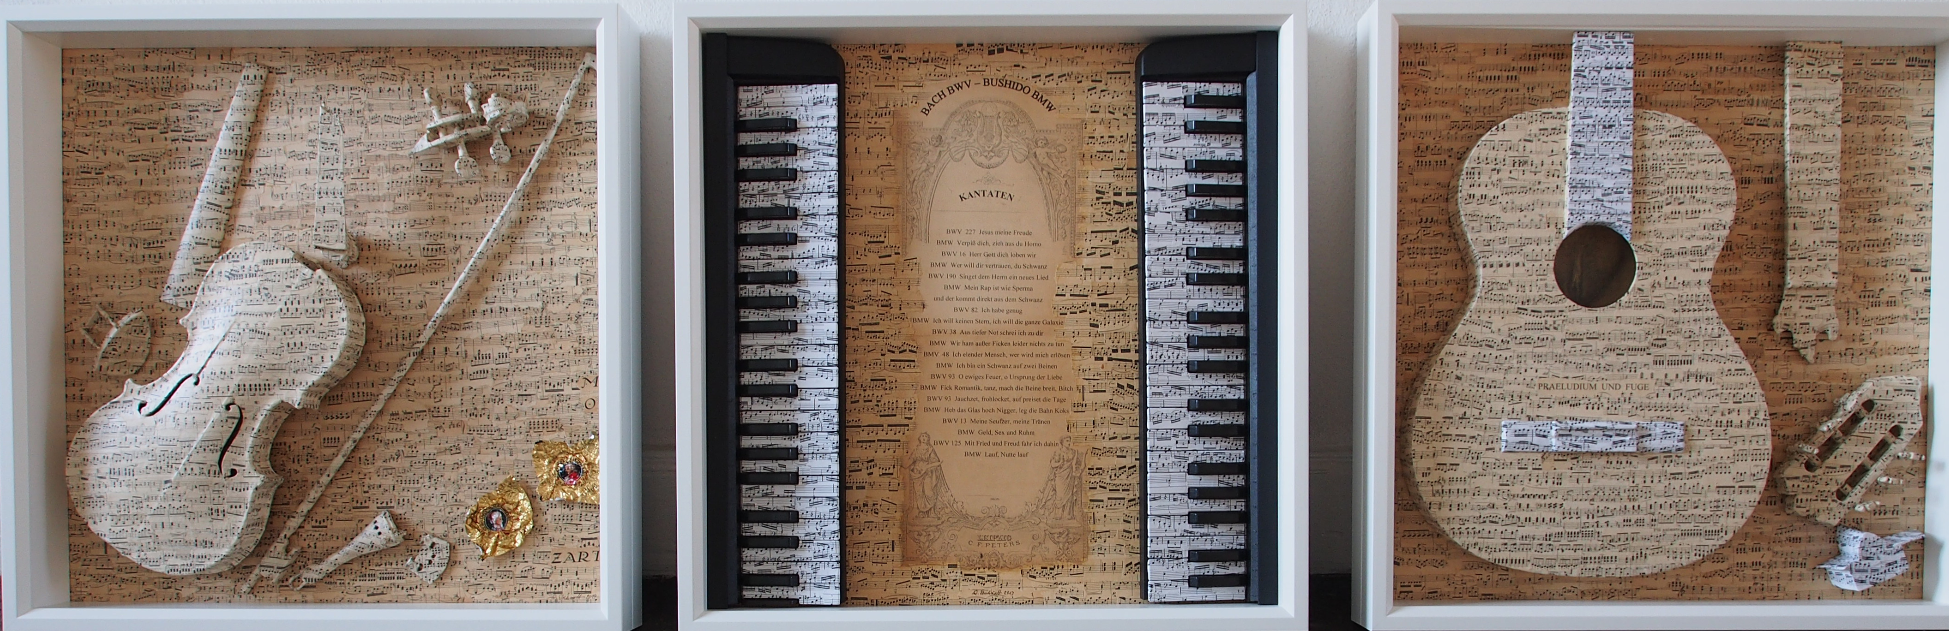 M
O
ZART
BACH BWV – BUSHIDO BMW
KANTATEN
BWV 227 Jesus meine Freude
BMW Verpiß dich, zieh aus du Homo
BWV 16 Herr Gott dich loben wir
BMW Wer will dir vertrauen, du Schwanz
BWV 190 Singet dem Herrn ein neues Lied
BMW Mein Rap ist wie Sperma
und der kommt direkt aus dem Schwanz
BWV 82 Ich habe genug
BMW Ich will keinen Stern, ich will die ganze Galaxie
BWV 38 Aus tiefer Not schrei ich zu dir
BMW Wir ham außer Ficken leider nichts zu tun
BWV 48 Ich elender Mensch, wer wird mich erlösen
BMW Ich bin ein Schwanz auf zwei Beinen
BWV O ewiges Feuer, o Ursprung der Liebe
BMW Fick Romantik, tanz, mach die Beine breit, Bitch
BWV Jauchzet, frohlocket, auf preiset die Tage
BMW Heb das Glas hoch Nigger, leg die Bahn Koks
BWV 13 Meine Seufzer, meine Tränen
BMW Geld, Sex und Ruhm
BWV 125 Mit Fried und Freud fahr ich dahin
BMW Lauf, Nutte lauf
LEIPZIG
C. F. PETERS
PRAELUDIUM UND FUGE